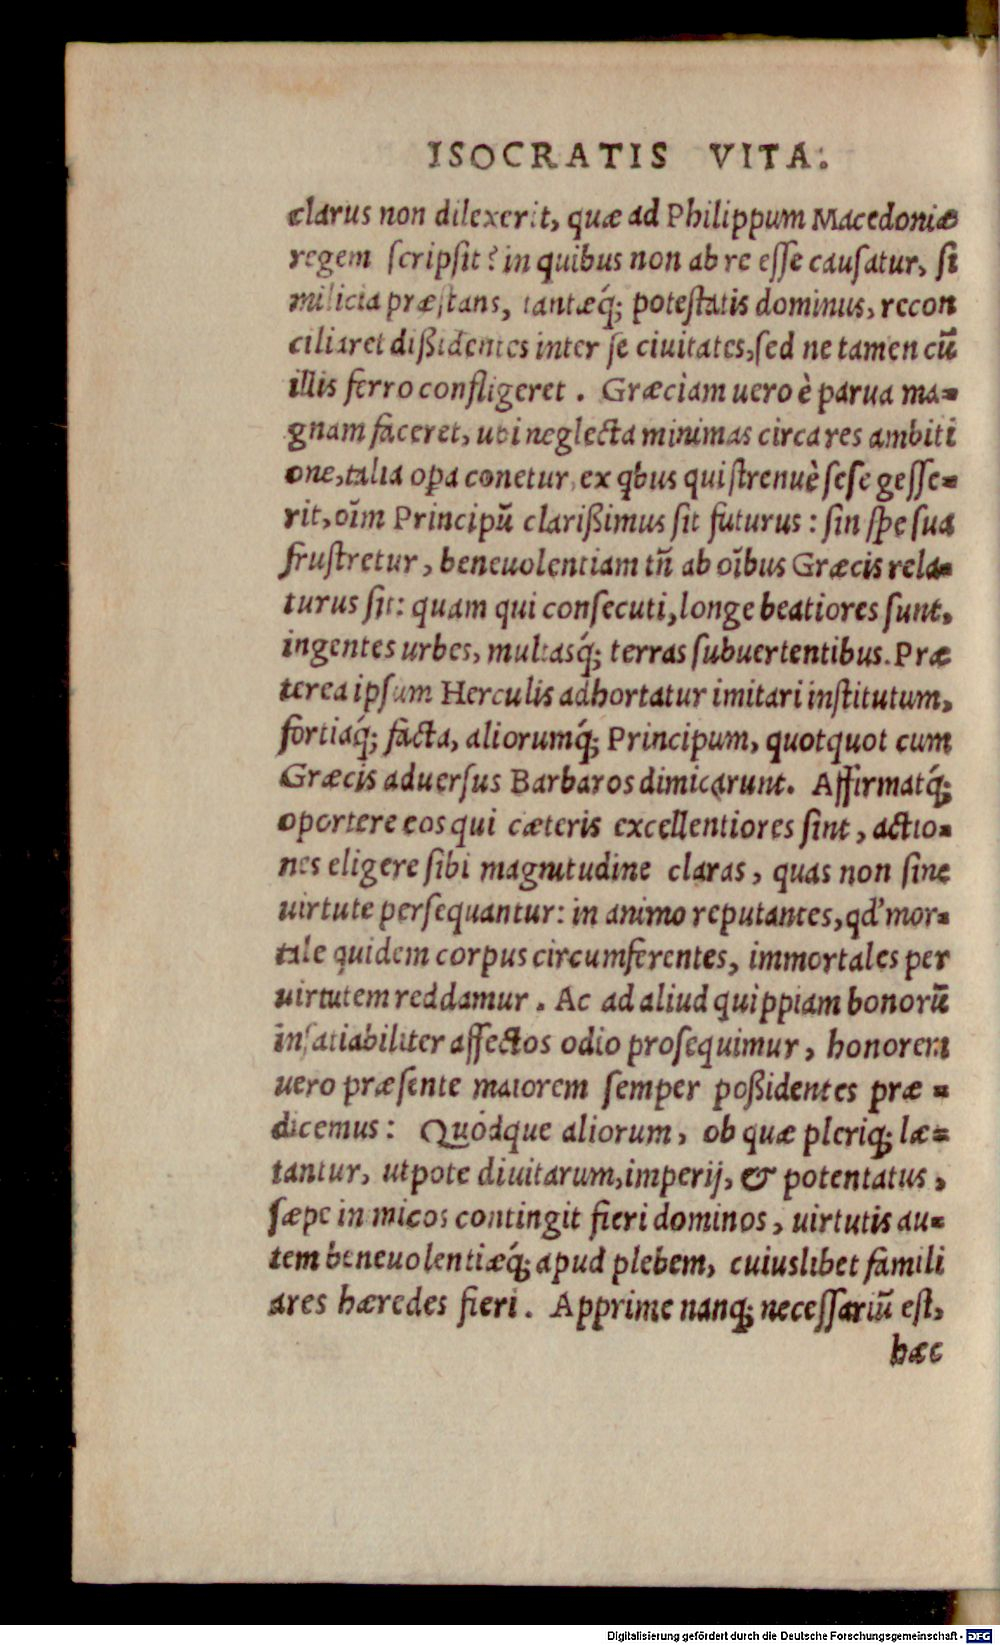 ISOCRATIS VITA.
clarus non dilexerit, quæ ad Philippum Macedoniæ
regem scripsit? in quibus non ab re esse causatur, si
milicia præstans, tantæq́; potestatis dominus, recon
ciliaret dißidentes inter se ciuitates, sed ne tamen cū
illis ferro confligeret. Græciam uero è parua ma-
gnam faceret, ubi neglecta minimas circa res ambiti
one, talia oꝑa conetur, ex qbus qui strenuè sese gesse-
rit, oīm Principū clarißimus sit futurus: sin spe sua
frustretur, beneuolentiam tñ ab oībus Græcis rela-
turus sit: quam qui consecuti, longe beatiores sunt,
ingentes urbes, multasq́; terras subuertentibus. Præ
terea ipsum Herculis adhortatur imitari institutum,
fortiaq́; facta, aliorumq́; Principum, quotquot cum
Græcis aduersus Barbaros dimicarunt. Affirmatq́;
oportere eos qui cæteris excellentiores sint, actio-
nes eligere sibi magnitudine claras, quas non sine
uirtute persequantur: in animo reputantes, qd' mor-
tale quidem corpus circumferentes, immortales per
uirtutem reddamur. Ac ad aliud quippiam bonorū
insatiabiliter affectos odio prosequimur, honorem
uero præsente maiorem semper poßidentes præ-
dicemus: Quódque aliorum, ob quæ pleriq; læ-
tantur, utpote diuitarum, imperij, & potentatus,
sæpe inimicos contingit fieri dominos, uirtutis au-
tem beneuolentiæq́; apud plebem, cuiuslibet famili
ares hæredes fieri. Apprime nanq; necessariū est,
hæc
Digitalisierung gefördert durch die Deutsche Forschungsgemeinschaft - DFG